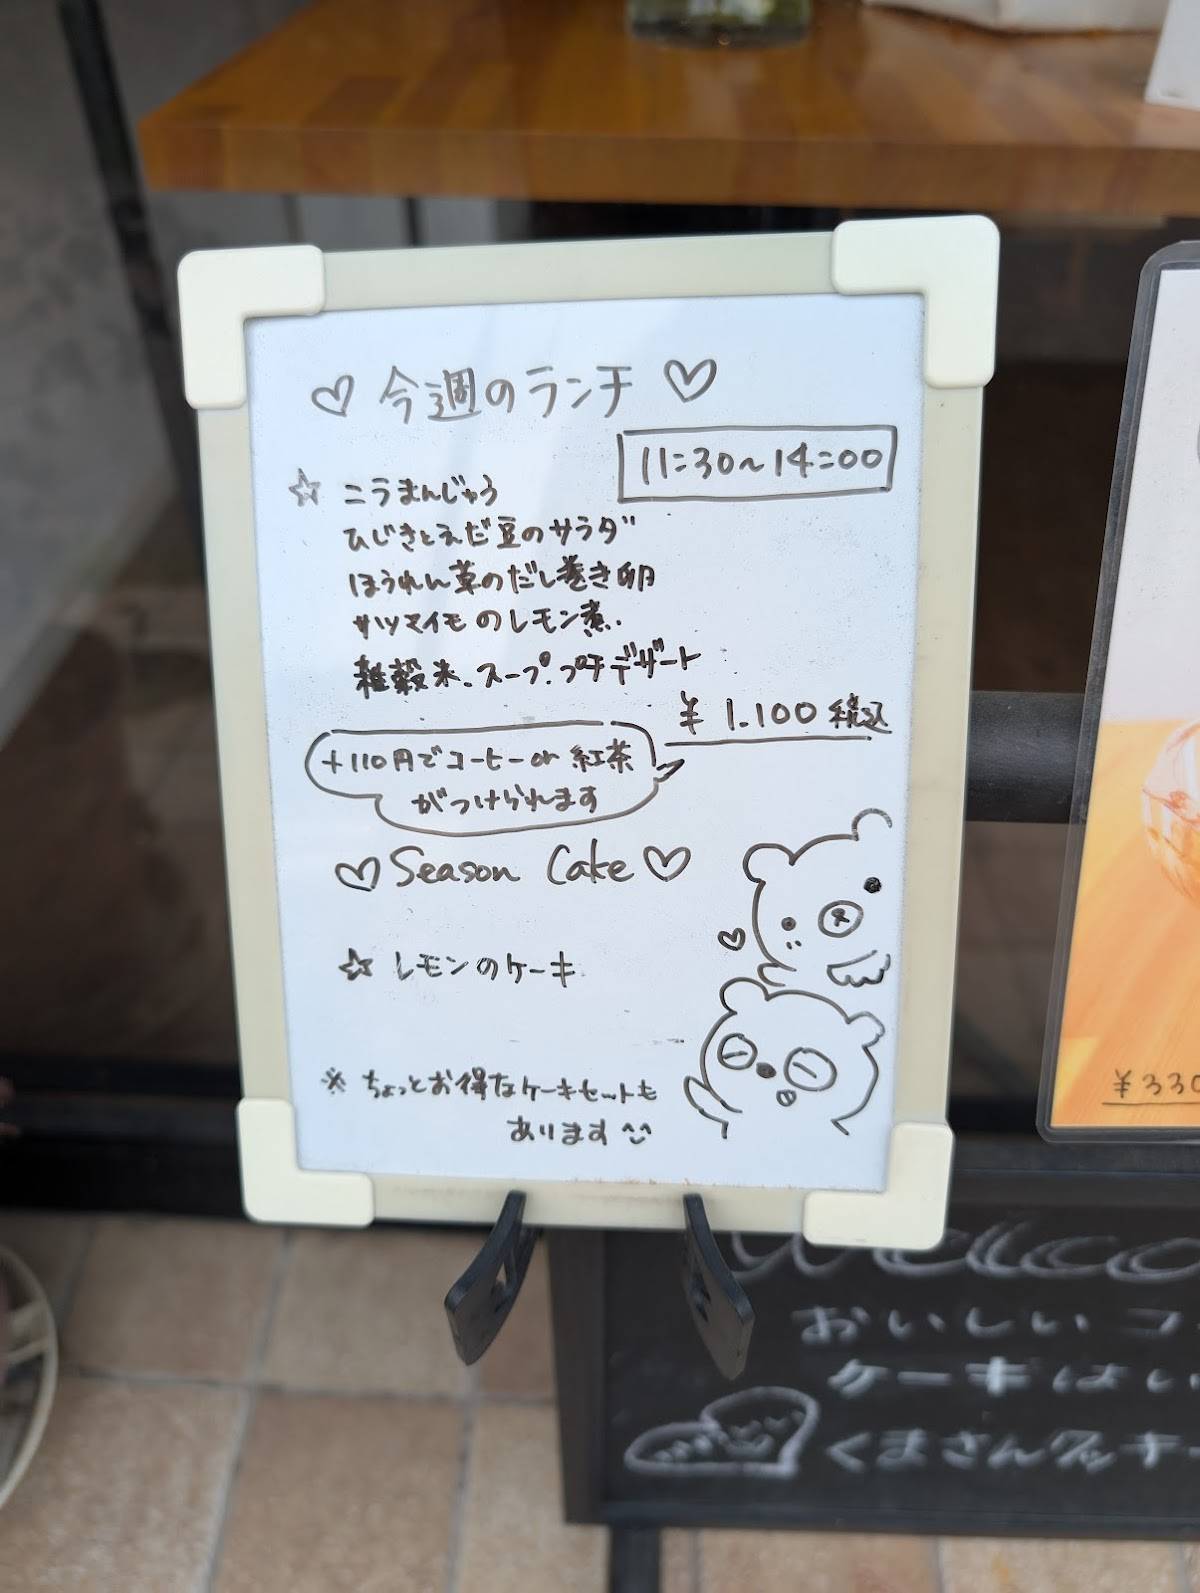 今週のランチ
11:30〜14:00
☆ ニラまんじゅう
ひじきとえだ豆のサラダ
ほうれん草のだし巻き卵
サツマイモのレモン煮.
雑穀米、スープ.プチデザート
¥1.100 税込
+110円でコーヒーor 紅茶
がつけられます
Season Cake
☆ レモンのケーキ
※ ちょっとお得なケーキセットも
あります
¥330
Welco
おいしいコ
ケーキはい
くまさんクッキー